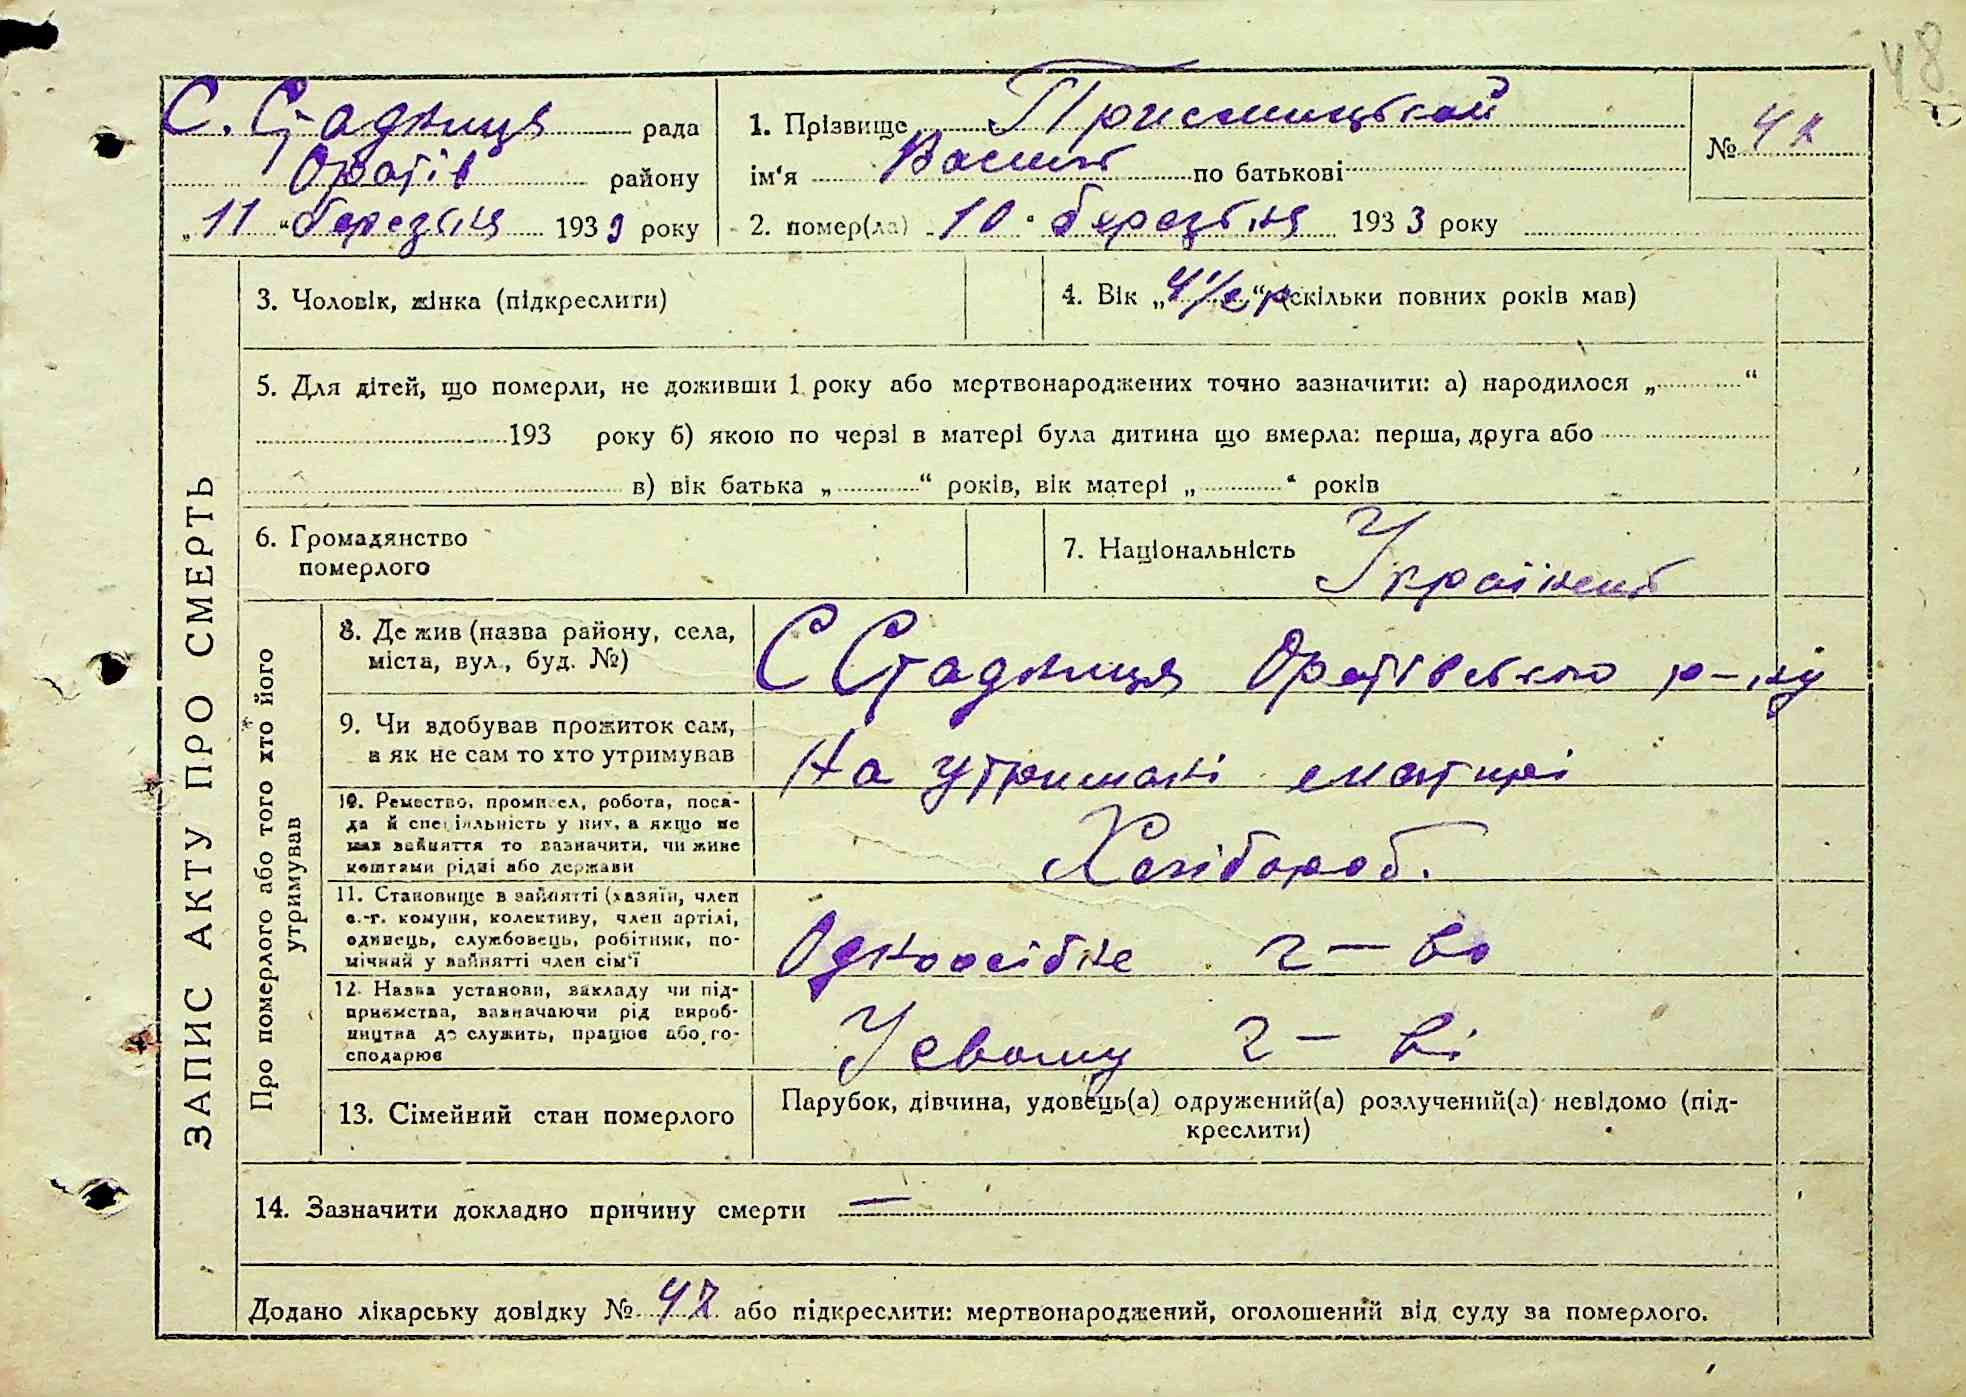 48
С. Стадниця рада
Оратів району
„11“ березня 1933 року
1. Прізвище Присмицький
ім'я Василь по батькові
2. помер(ла) 10 березня 1933 року
№ 42
ЗАПИС АКТУ ПРО СМЕРТЬ
3. Чоловік, жінка (підкреслити)
4. Вік „4 1/2 р“ (скільки повних років мав)
5. Для дітей, що померли, не доживши 1 року або мертвонароджених точно зазначити: а) народилося „ “
193 року б) якою по черзі в матері була дитина що вмерла: перша, друга або
в) вік батька „ “ років, вік матері „ “ років
6. Громадянство
померлого
7. Національність Українець
Про померлого або того хто його
утримував
8. Де жив (назва району, села,
міста, вул., буд. №)
С Стадниця Оратівського р-ну
9. Чи вдобував прожиток сам,
а як не сам то хто утримував
На утримані матирі
10. Ремество, промисел, робота, поса-
да й спеціяльність у них, а якщо не
мав вайняття то вазначити, чи живе
коштами рідні або держави
Хлібороб.
11. Становище в зайнятті (хазяїн, член
с.-г. комуни, колективу, член артілі,
одинець, службовець, робітник, по-
мічний у вайнятті член сім'ї
Одноосібне г-во
12. Назва установи, вакладу чи під-
приємства, вазначаючи рід вироб-
ництва де служить, працює або го-
сподарює
У свойму г-ві
13. Сімейний стан померлого
Парубок, дівчина, удовець(а) одружений(а) розлучений(а) невідомо (під-
креслити)
14. Зазначити докладно причину смерти —
Додано лікарську довідку № 42 або підкреслити: мертвонароджений, оголошений від суду за померлого.